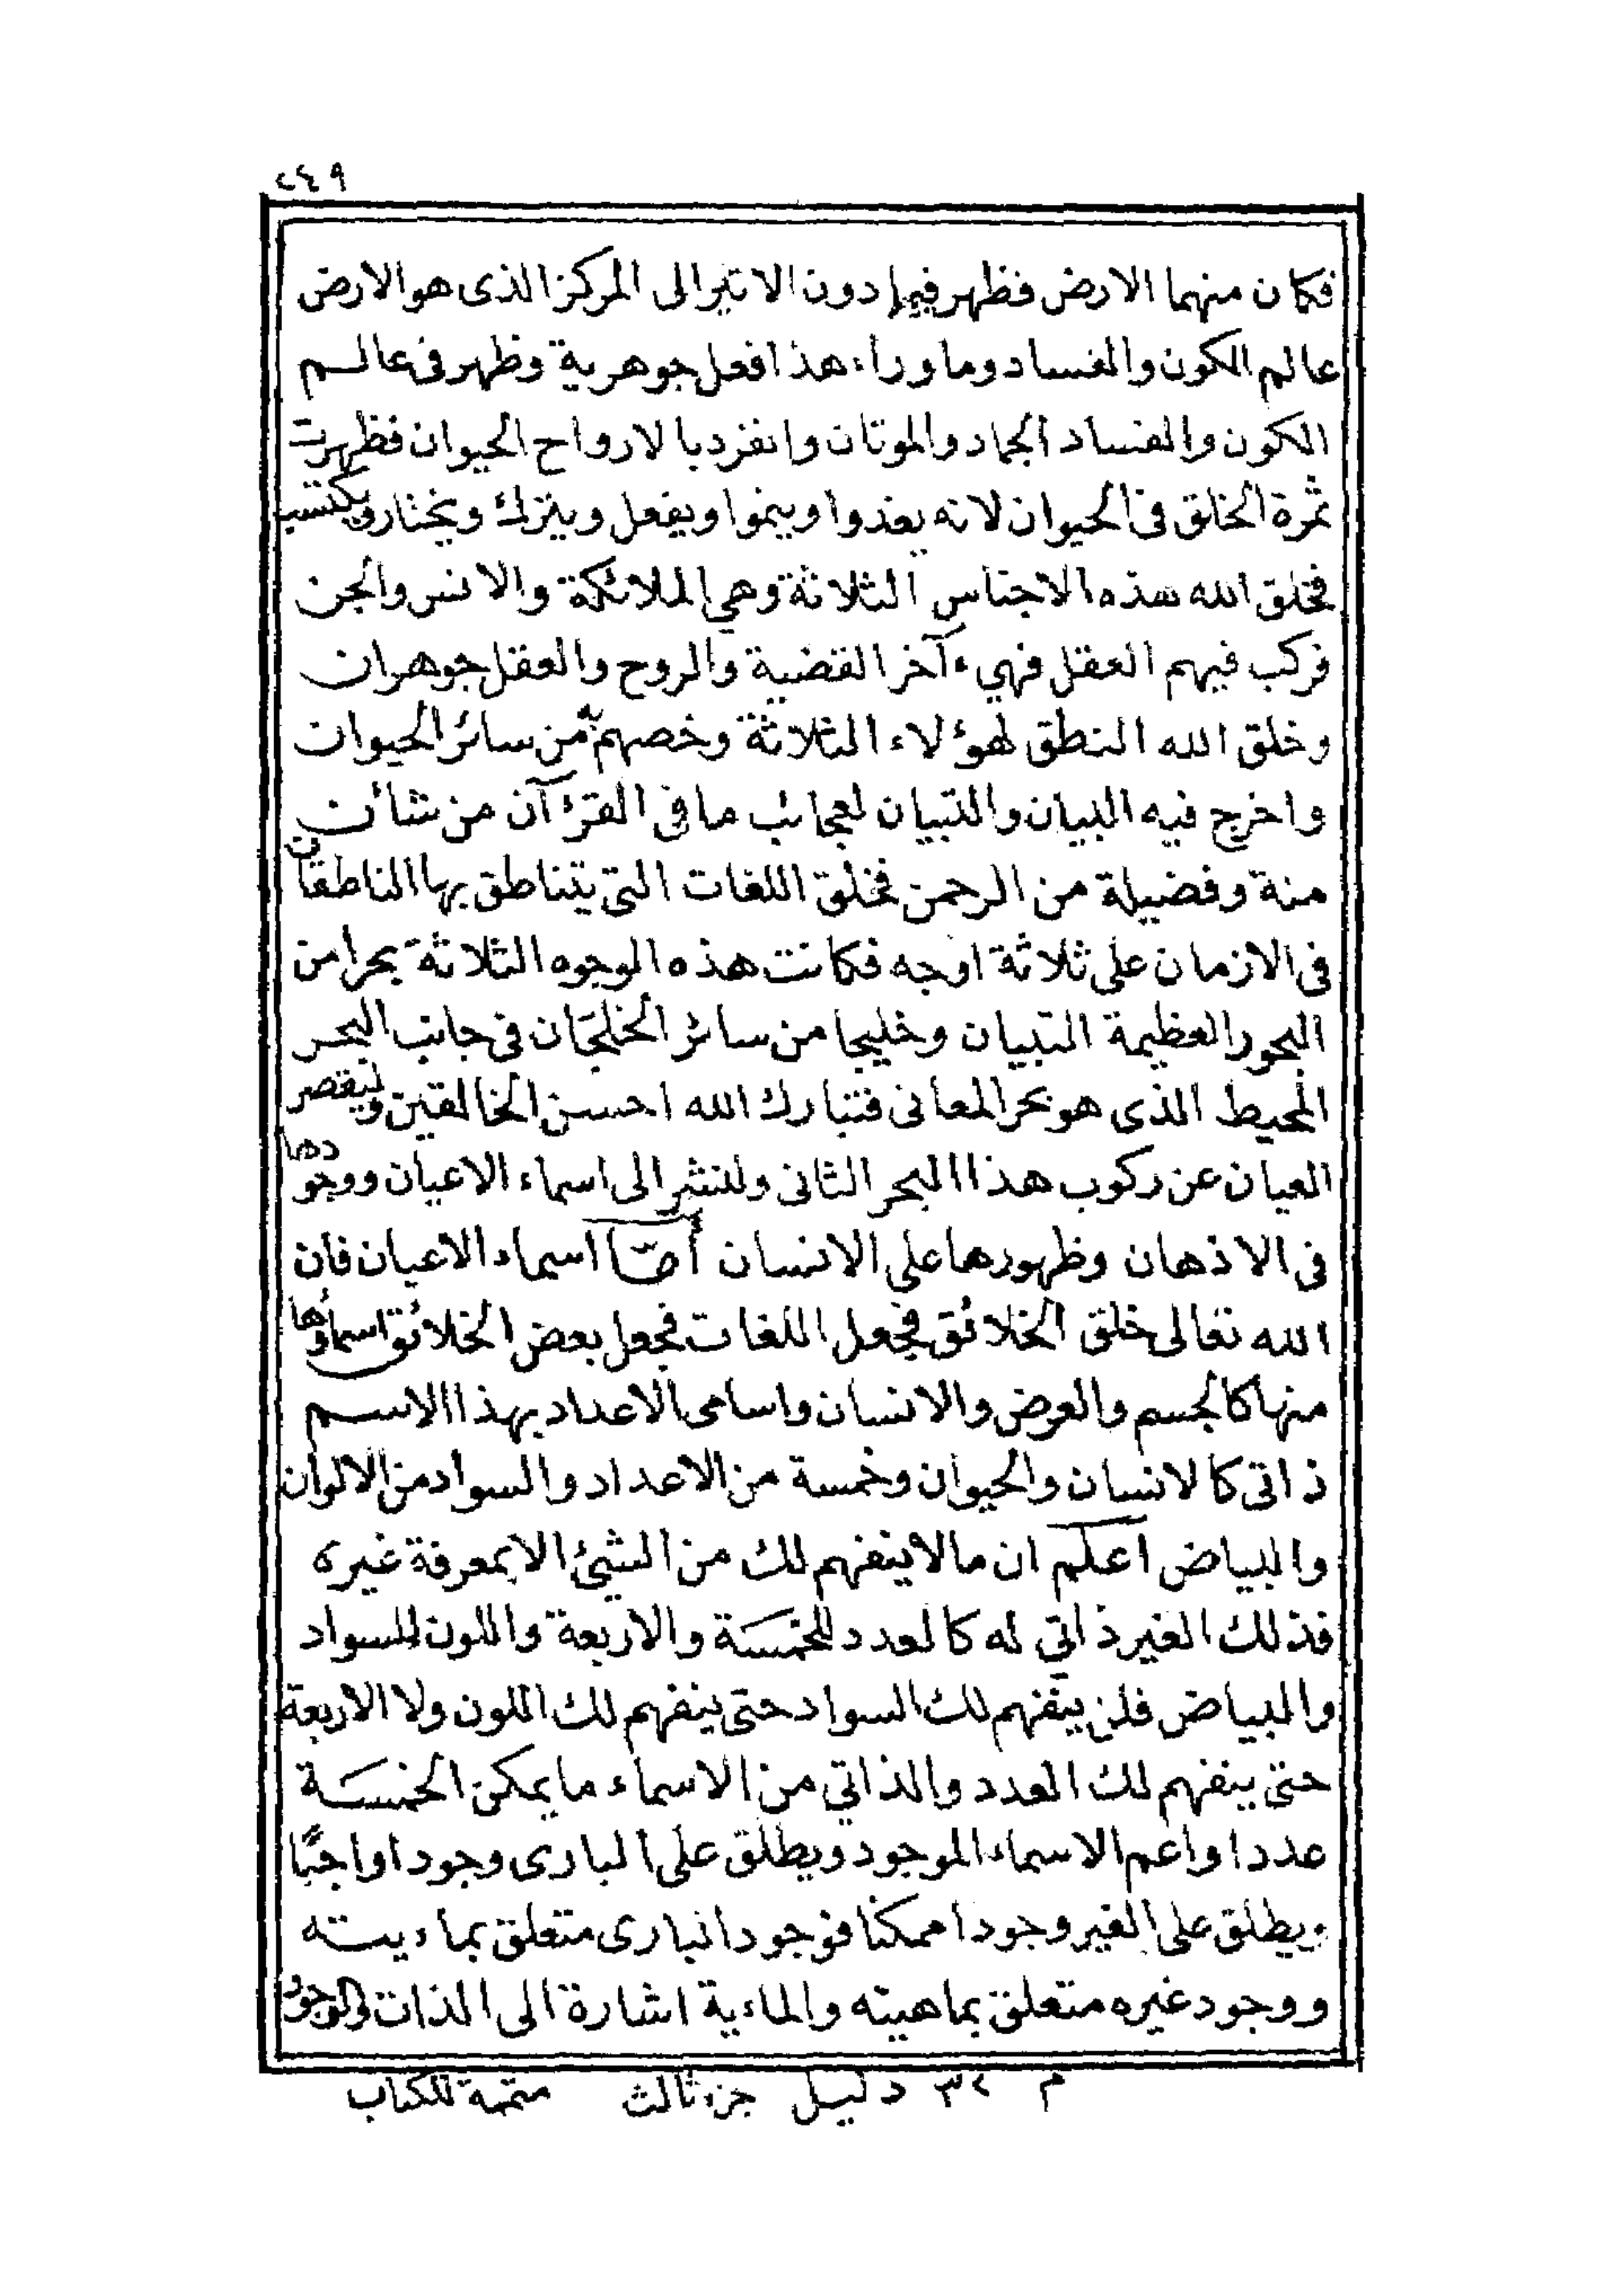 ٢٤٩
فكان منهما الارض فظهر فيما دون الاثير الى المركز الذى هو الارض
عالم الكون والفساد وما وراء هذا فعل جوهرية وظهر فى عالم
الكون والفساد الجماد والموتان وانفرد بالارواح الحيوان فظهرت
ثمرة الخلق فى الحيوان لانه يغذوا وينموا ويفعل ويترك ويختار ويكتسب
فخلق الله هذه الاجناس الثلاثة وهي الملائكة والانس والجن
فركب فيهم العقل فهيء آخر القضية والروح والعقل جوهران
وخلق الله النطق لهؤلاء الثلاثة وخصهم به من سائر الحيوان
واخرج فيه البيان والتبيان لعجائب ما فى القرءآن من شأن
منة وفضيلة من الرحمن فخلق اللغات التى يتناطق بها الناطقان
فى الازمان على ثلاثة اوجه فكانت هذه الوجوه الثلاثة بحرا من
البحور العظيمة التبيان وخليجا من سائر الخلجان فى جانب البحر
المحيط الذى هو بحر المعانى فتبارك الله احسن الخالقين وليقصر
العيان عن ركوب هذا البحر الثانى ولنشر الى اسماء الاعيان ووجودها
فى الاذهان وظهورها على الانسان أمّا اسماء الاعيان فان
الله تعالى خلق الخلائق فجعل اللغات فجعل بعض الخلائق اسماؤها
منها كالجسم والعرض والانسان واسامى الاعداد بهذا الاسم
ذاتى كالانسان والحيوان وخمسة من الاعداد والسواد من الالوان
والبياض اعلم ان مالا ينفهم لك من الشيئ الا بمعرفة غيره
فذلك الغير ذاتي له كالعدد للخمسة والاربعة واللون للسواد
والبياض فلن ينفهم لك السواد حتى ينفهم لك اللون ولا الاربعة
حتى ينفهم لك العدد والذاتي من الاسماء ما يمكن الخمسة
عددا واعم الاسماء الموجود ويطلق على البارى وجودا واجبًا
ويطلق على الغير وجودا ممكنا فوجود البارى متعلق بماءيته
ووجود غيره متعلق بماهيته والماءية اشارة الى الذات والوجود
م ٣٢ دليل جزء ثالث متممة للكتاب